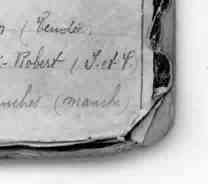 (Vendée.
-Robert (S. et O.
anches (manche)